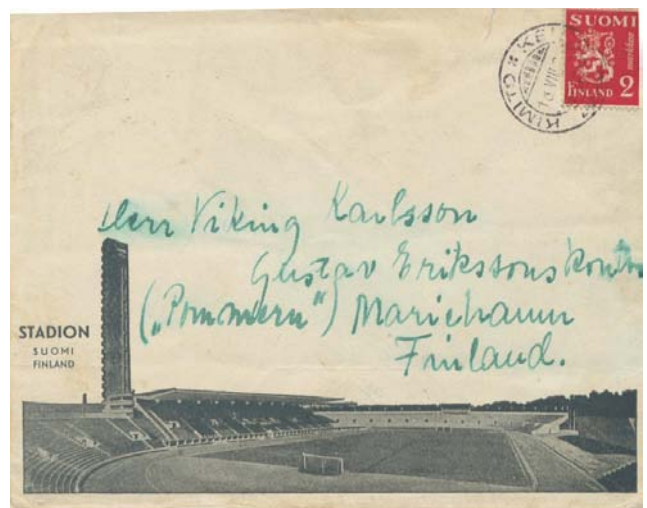 SUOMI
markkaa
FINLAND 2
KIMITO
Herr Viking Karlsson
Gustav Erikssons Kontor
("Pommern") Mariehamn
Finland.
STADION
SUOMI
FINLAND